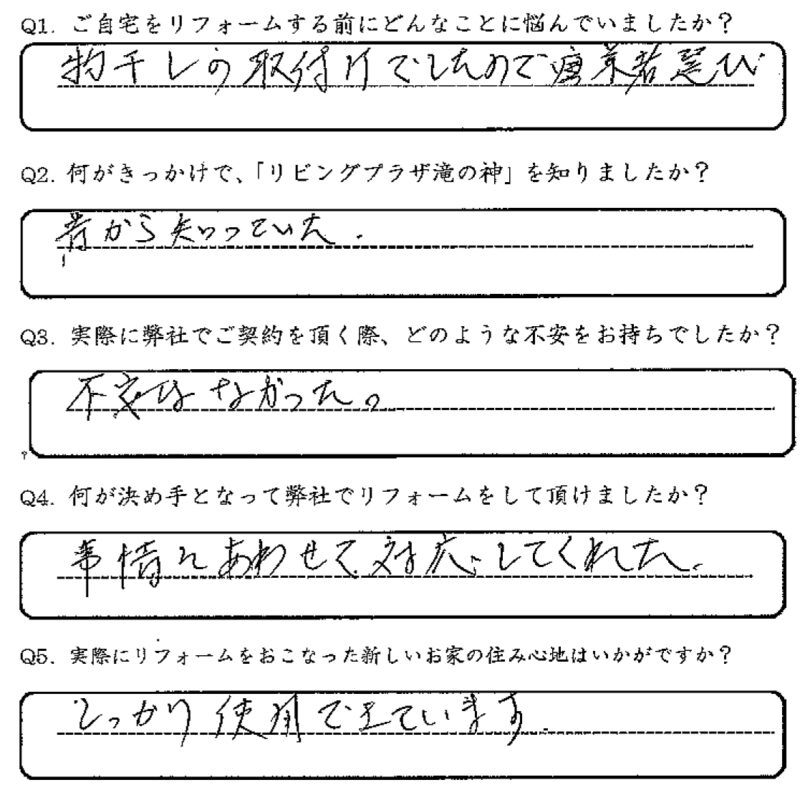 Q1. ご自宅をリフォームする前にどんなことに悩んでいましたか？
物干しの取付けでしたので業者選び
Q2. 何がきっかけで、「リビングプラザ滝の神」を知りましたか？
昔から知っていた.
Q3. 実際に弊社でご契約を頂く際、どのような不安をお持ちでしたか？
不安はなかった。
Q4. 何が決め手となって弊社でリフォームをして頂けましたか？
事情にあわせて対応してくれた.
Q5. 実際にリフォームをおこなった新しいお家の住み心地はいかがですか？
しっかり使用できています.